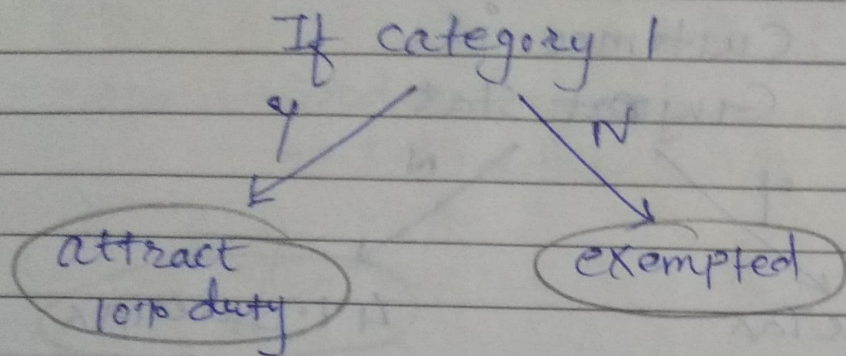 If category 1
Y
N
attract
10% duty
exempted